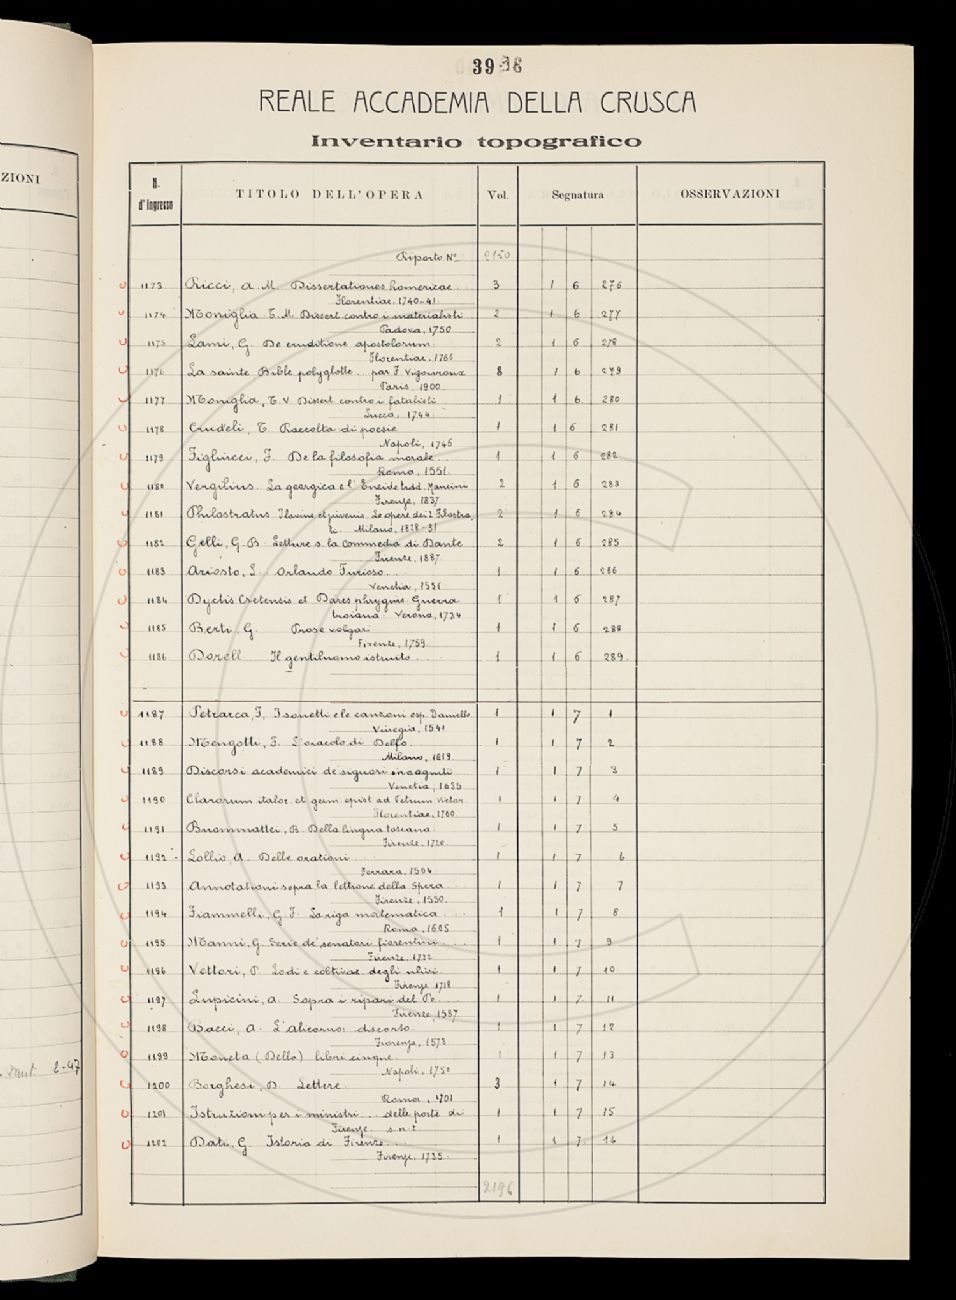 39
REALE ACCADEMIA DELLA CRUSCA
Inventario topografico
ZIONI
N. d'ingresso TITOLO DELL'OPERA Vol. Segnatura OSSERVAZIONI
Riporto N° 2150
1173 Ricci, A. M. Dissertationes homericae 3 1 6 276
Florentiae, 1740-41
1174 Moniglia T. M. Dissert contro i materialisti 2 1 6 277
Padova, 1750
1175 Lami, G. De eruditione apostolorum 2 1 6 278
Florentiae, 1766
1176 La sainte Bible polyglotte.. par F. Vigouroux 8 1 6 279
Paris, 1900
1177 Moniglia, T. V. Dissert contro i fatalisti 1 1 6 280
Lucca, 1744
1178 Crudeli, T. Raccolta di poesie 1 1 6 281
Napoli, 1746
1179 Figliucci, F. De la filosofia morale 1 1 6 282
Roma, 1551
1180 Vergilius. La georgica e l'Eneide trad. Mancini 2 1 6 283
Firenze, 1837
1181 Philostratus et Le opere dei 2 Filostra, 2 1 6 284
ti. Milano, 1828-31
1182 Gelli, G. B. Letture s. la commedia di Dante 2 1 6 285
Firenze, 1887
1183 Ariosto, L. Orlando Furioso 1 1 6 286
Venetia, 1556
1184 Dyctis Cretensis et Dares phrygius. Guerra 1 1 6 287
troiana. Verona, 1734
1185 Berti, G. Prose volgari 1 1 6 288
Firenze, 1759
1186 Dorell Il gentiluomo istruito 1 1 6 289.
1187 Petrarca, F. I sonetti e le canzoni esp. Daniello 1 1 7 1
Vinegia, 1541
1188 Mengotti, F. L'oracolo di Delfo 1 1 7 2
Milano, 1819
1189 Discorsi academici de' signori incogniti 1 1 7 3
Venetia, 1635
1190 Clarorum italor. et germ. epist ad Petrum Victor. 1 1 7 4
Florentiae, 1760
1191 Buommattei, B. Della lingua toscana 1 1 7 5
Firenze, 1720
1192 Lollio, A. Delle orationi 1 1 7 6
Ferrara, 1564
1193 Annotationi sopra la lettione della Spera 1 1 7 7
Firenze, 1550
1194 Fiammelli, G. F. La riga matematica 1 1 7 8
Roma, 1605
1195 Manni, G. Serie de' senatori fiorentini 1 1 7 9
Firenze, 1722
1196 Vettori, P. Lodi e coltivaz. degli ulivi 1 1 7 10
Firenze 1718
1197 Lupicini, A. Sopra i ripari del Po 1 1 7 11
Firenze, 1587
1198 Bacci, A. L'alicorno: discorso 1 1 7 12
Fiorenza, 1573
1199 Moneta (Della) libri cinque 1 1 7 13
Napoli, 1750
1200 Borghesi, D. Lettere 3 1 7 14
Roma, 1701
1201 Istruzioni per i ministri.. delle porte di 1 1 7 15
Firenze. s.n.t.
1202 Dati, G. Istoria di Firenze 1 1 7 16
Firenze, 1735
2196
2-47